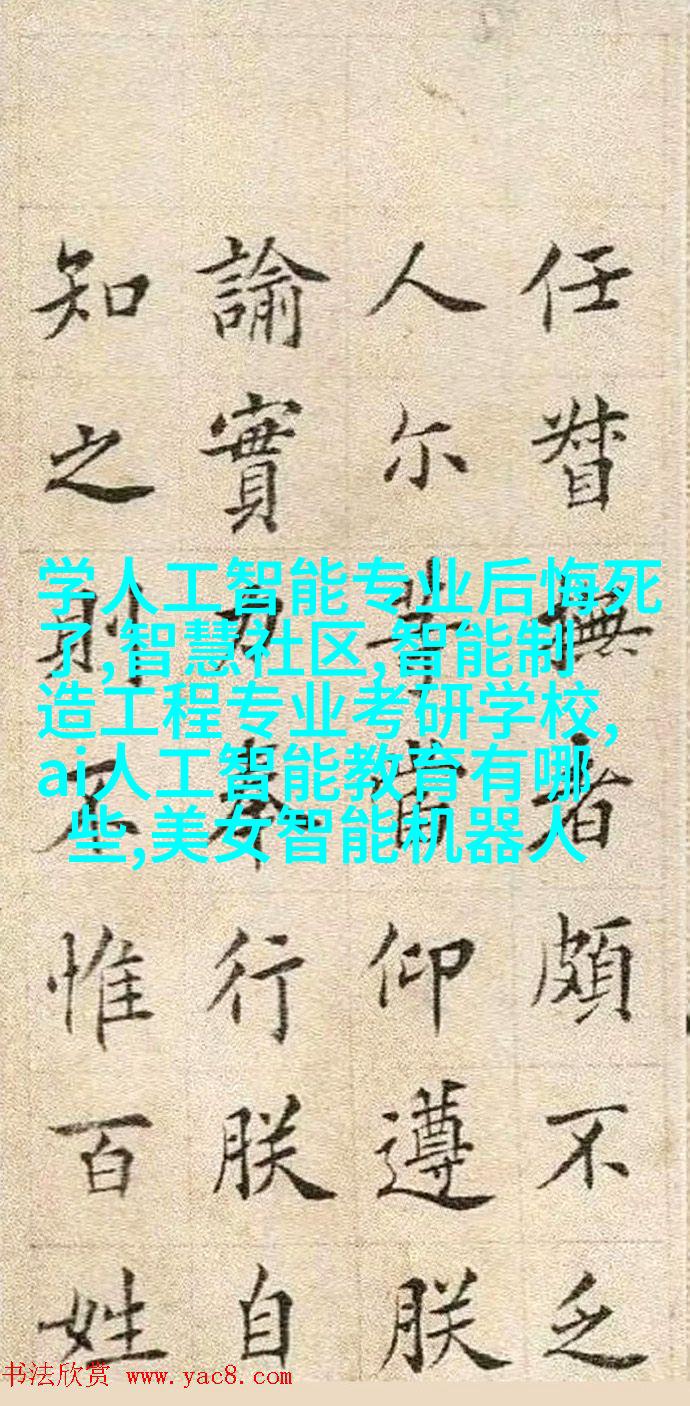 任督撫者頗不乏
人尓等當仰遵朕
諭實力奉行朕自
知之則不惟百姓
学人工智能专业后悔死
了,智慧社区,智能制
造工程专业考研学校,
ai人工智能教育有哪
些,美女智能机器人
书法欣赏 www.yac8.com